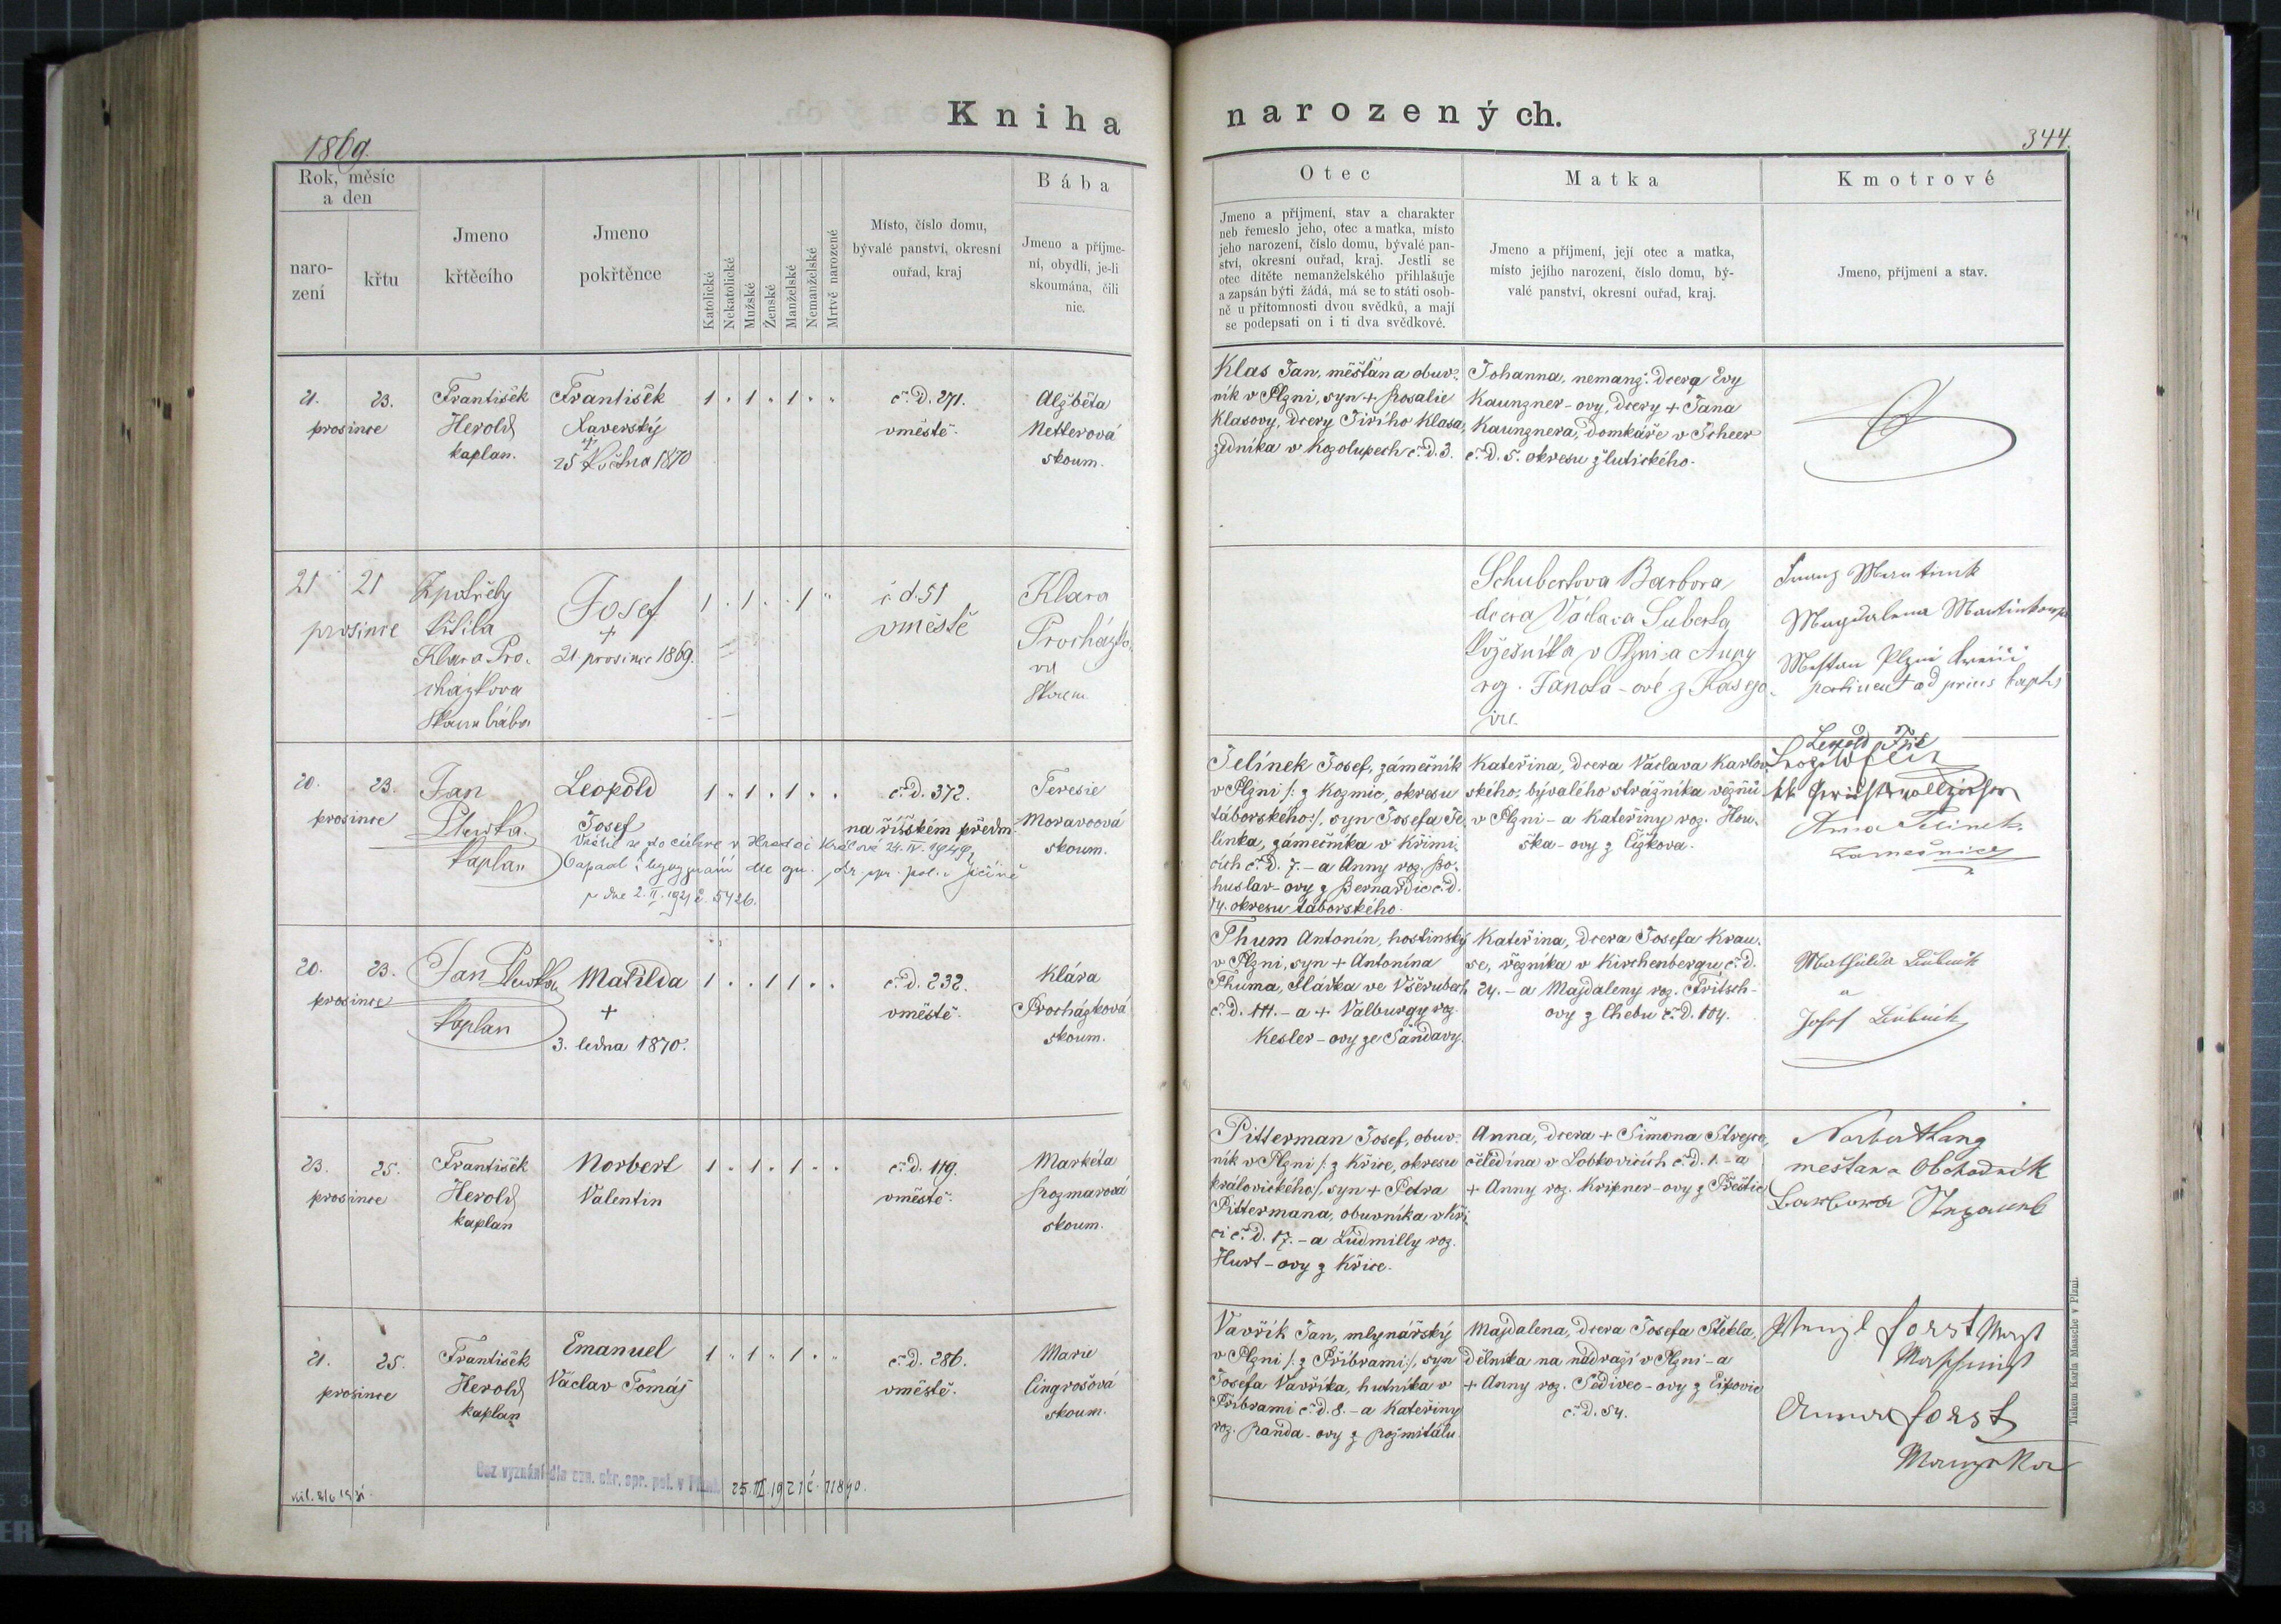 Kniha narozených.
1869.
344.
Rok, měsíc
a den
naro-
zení
křtu
Jmeno
křtěcího
Jmeno
pokřtěnce
Katolické
Nekatolické
Mužské
Ženské
Manželské
Nemanželské
Mrtvě narozené
Místo, číslo domu,
bývalé panství, okresní
ouřad, kraj
Bába
Jmeno a příjme-
ní, obydlí, je-li
skoumána, čili
nic.
Otec
Jmeno a příjmení, stav a charakter
neb řemeslo jeho, otec a matka, místo
jeho narození, číslo domu, bývalé pan-
ství, okresní ouřad, kraj. Jestli se
otec dítěte nemanželského přihlašuje
a zapsán býti žádá, má se to státi osob-
ně u přítomnosti dvou svědků, a mají
se podepsati on i ti dva svědkové.
Matka
Jmeno a příjmení, její otec a matka,
místo jejího narození, číslo domu, bý-
valé panství, okresní ouřad, kraj.
Kmotrové
Jmeno, příjmení a stav.
21. 23.
prosince
František
Herold
kaplan.
František
Xaverský
+
25 Května 1870
1 . 1 . 1 . .
č. d. 271.
v městě.
Alžběta
Netterová
skoum.
Klas Jan, měšťan a obuv-
ník v Plzni, syn + Rosalie
Klasovy, dcery Jiřího Klasa,
zedníka v Kozolupech č. d. 3.
Johanna, nemanž. dcera Evy
Kaunzner-ovy, dcery + Jana
Kaunznera, domkáře v Scheer
č. d. 5. okresu žlutického.
21 21
prosince
Klara Pro-
cházkova
skoum bába
Josef
+
21 prosince 1869.
1 . 1 . . 1 "
č. d. 51
v městě
Klara
Procházko-
va
skoum
Schubertova Barbora
dcera Václava Šuberta
Kožešníka v Plzni a Anny
roz.
Magdalena Martinkova
20. 23.
prosince
Jan
kaplan
Leopold
Josef
1 . 1 . 1 . .
č. d. 372.
na říšském předm.
Teresie
Moravcová
skoum.
Vrátil se do církve v Hradci Králové 24. IV. 1949.
č. 5426.
Jelínek Josef, zámečník
v Plzni /: z Kozmic, okresu
táborského :/, syn Josefa Je-
línka, zámečníka v Křimi-
cích č. d. 7. - a Anny roz. Bo-
huslav-ovy z Bernardic č. d.
14. okresu táborského.
Kateřina, dcera Václava Karlov-
ského, bývalého strážníka vězňů
v Plzni - a Kateřiny roz. Hou-
ška-ovy z Čižkova.
Anna Jelinek
20. 23.
prosince
Jan
kaplan
Matilda
+
3. ledna 1870.
1 . . 1 1 . .
č. d. 232.
v městě.
Klára
Procházková
skoum.
Thum Antonín, hostinský
v Plzni, syn + Antonína
Thuma, sládka ve Všerubech
č. d. 111. - a + Valburgy roz.
Kesler-ovy ze Šandavy.
Kateřina, dcera Josefa Krau-
se, řezníka v Kirchenbergu č. d.
24. - a Majdaleny roz. Fritsch-
ovy z Chebu č. d. 104.
a
23. 25.
prosince
František
Herold
kaplan
Norbert
Valentin
1 . 1 . 1 . .
č. d. 119.
v městě.
Markéta
Rozmarová
skoum.
Pitterman Josef, obuv-
ník v Plzni /: z Křice, okresu
královického :/, syn + Petra
Pittermana, obuvníka v Kři-
ci č. d. 17. - a Ludmilly roz.
Hurt-ovy z Křice.
Anna, dcera + Šimona Strejce,
čeledína v Lobkovicích č. d. 1. - a
+ Anny roz. Kripner-ovy z Přeštic
Norbert Lang
mešťan a Obchodník
21. 25.
prosince
František
Herold
kaplan
Emanuel
Václav Tomáš
1 . 1 . 1 . .
č. d. 286.
v městě.
Marie
Cingrošová
skoum.
Bez vyznání dle ozn. okr. spr. pol. v Plzni 25. II 1921 č. 11840.
Vavřík Jan, mlynářský
v Plzni /: z Příbrami :/, syn
Josefa Vavříka, hutníka v
Příbrami č. d. 8. - a Kateřiny
roz. Randa-ovy z Rožmitálu.
Majdalena, dcera Josefa Štekla,
dělníka na nádraží v Plzni - a
+ Anny roz. Sedivec-ovy z
č. d. 54.
Tiskem Karla Maasche v Plzni.